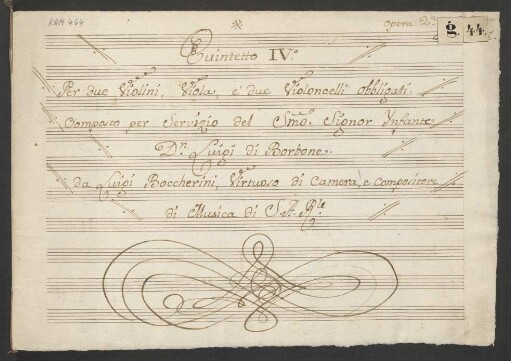 KHM 464
opera 2ª
g. 44
Quintetto IV.º
Per due Violini, Viola, e due Violoncelli obbligati.
Composto per Servizio del Smo. Signor Ynfante
Dn. Luigi di Borbone.
da Luigi Boccherini, Virtuoso di Camera, e Compositore
di Musica di S. A. Rle.